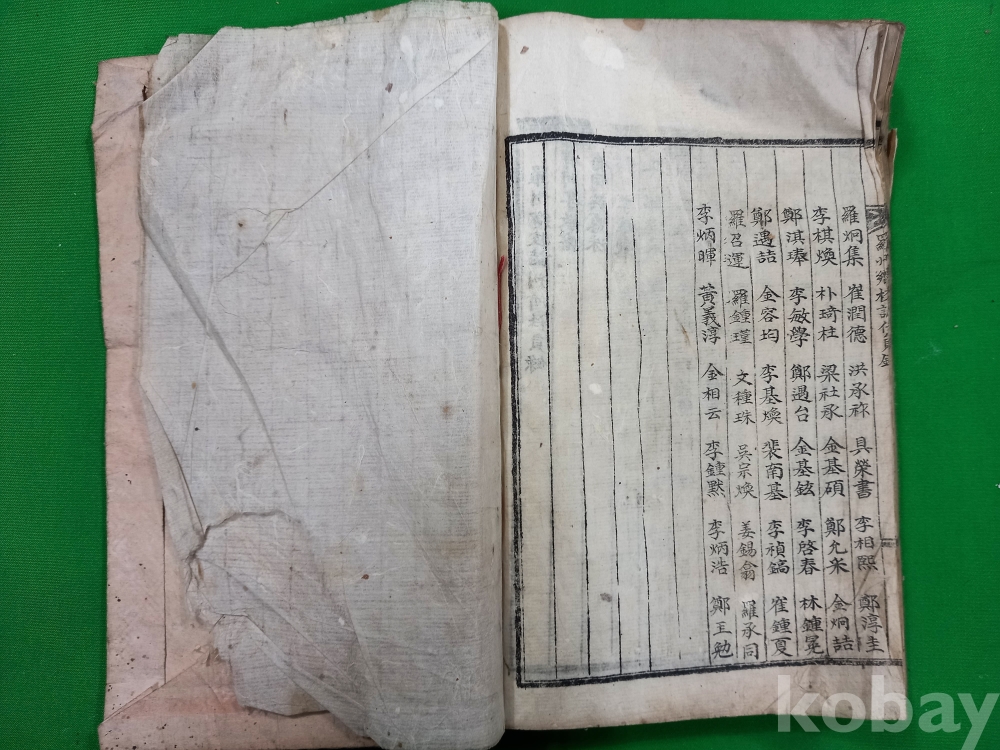 羅州鄕校
羅炯集 崔潤德 洪承祚 具榮書 李相熙 鄭淳圭
李棋煥 朴琦柱 梁社承 金基碩 鄭允采 金炯喆
鄭淇琫 李敏學 鄭遇台 金基鉉 李啓春 林鍾冕
鄭遇喆 金容均 李基煥 裴南基 李禎鎬 崔鍾夏
羅召運 羅鍾瑾 文種珠 吳宗煥 姜錫翕 羅承同
李炳暉 黃義淳 金相云 李鍾默 李炳浩 鄭王勉
kobay